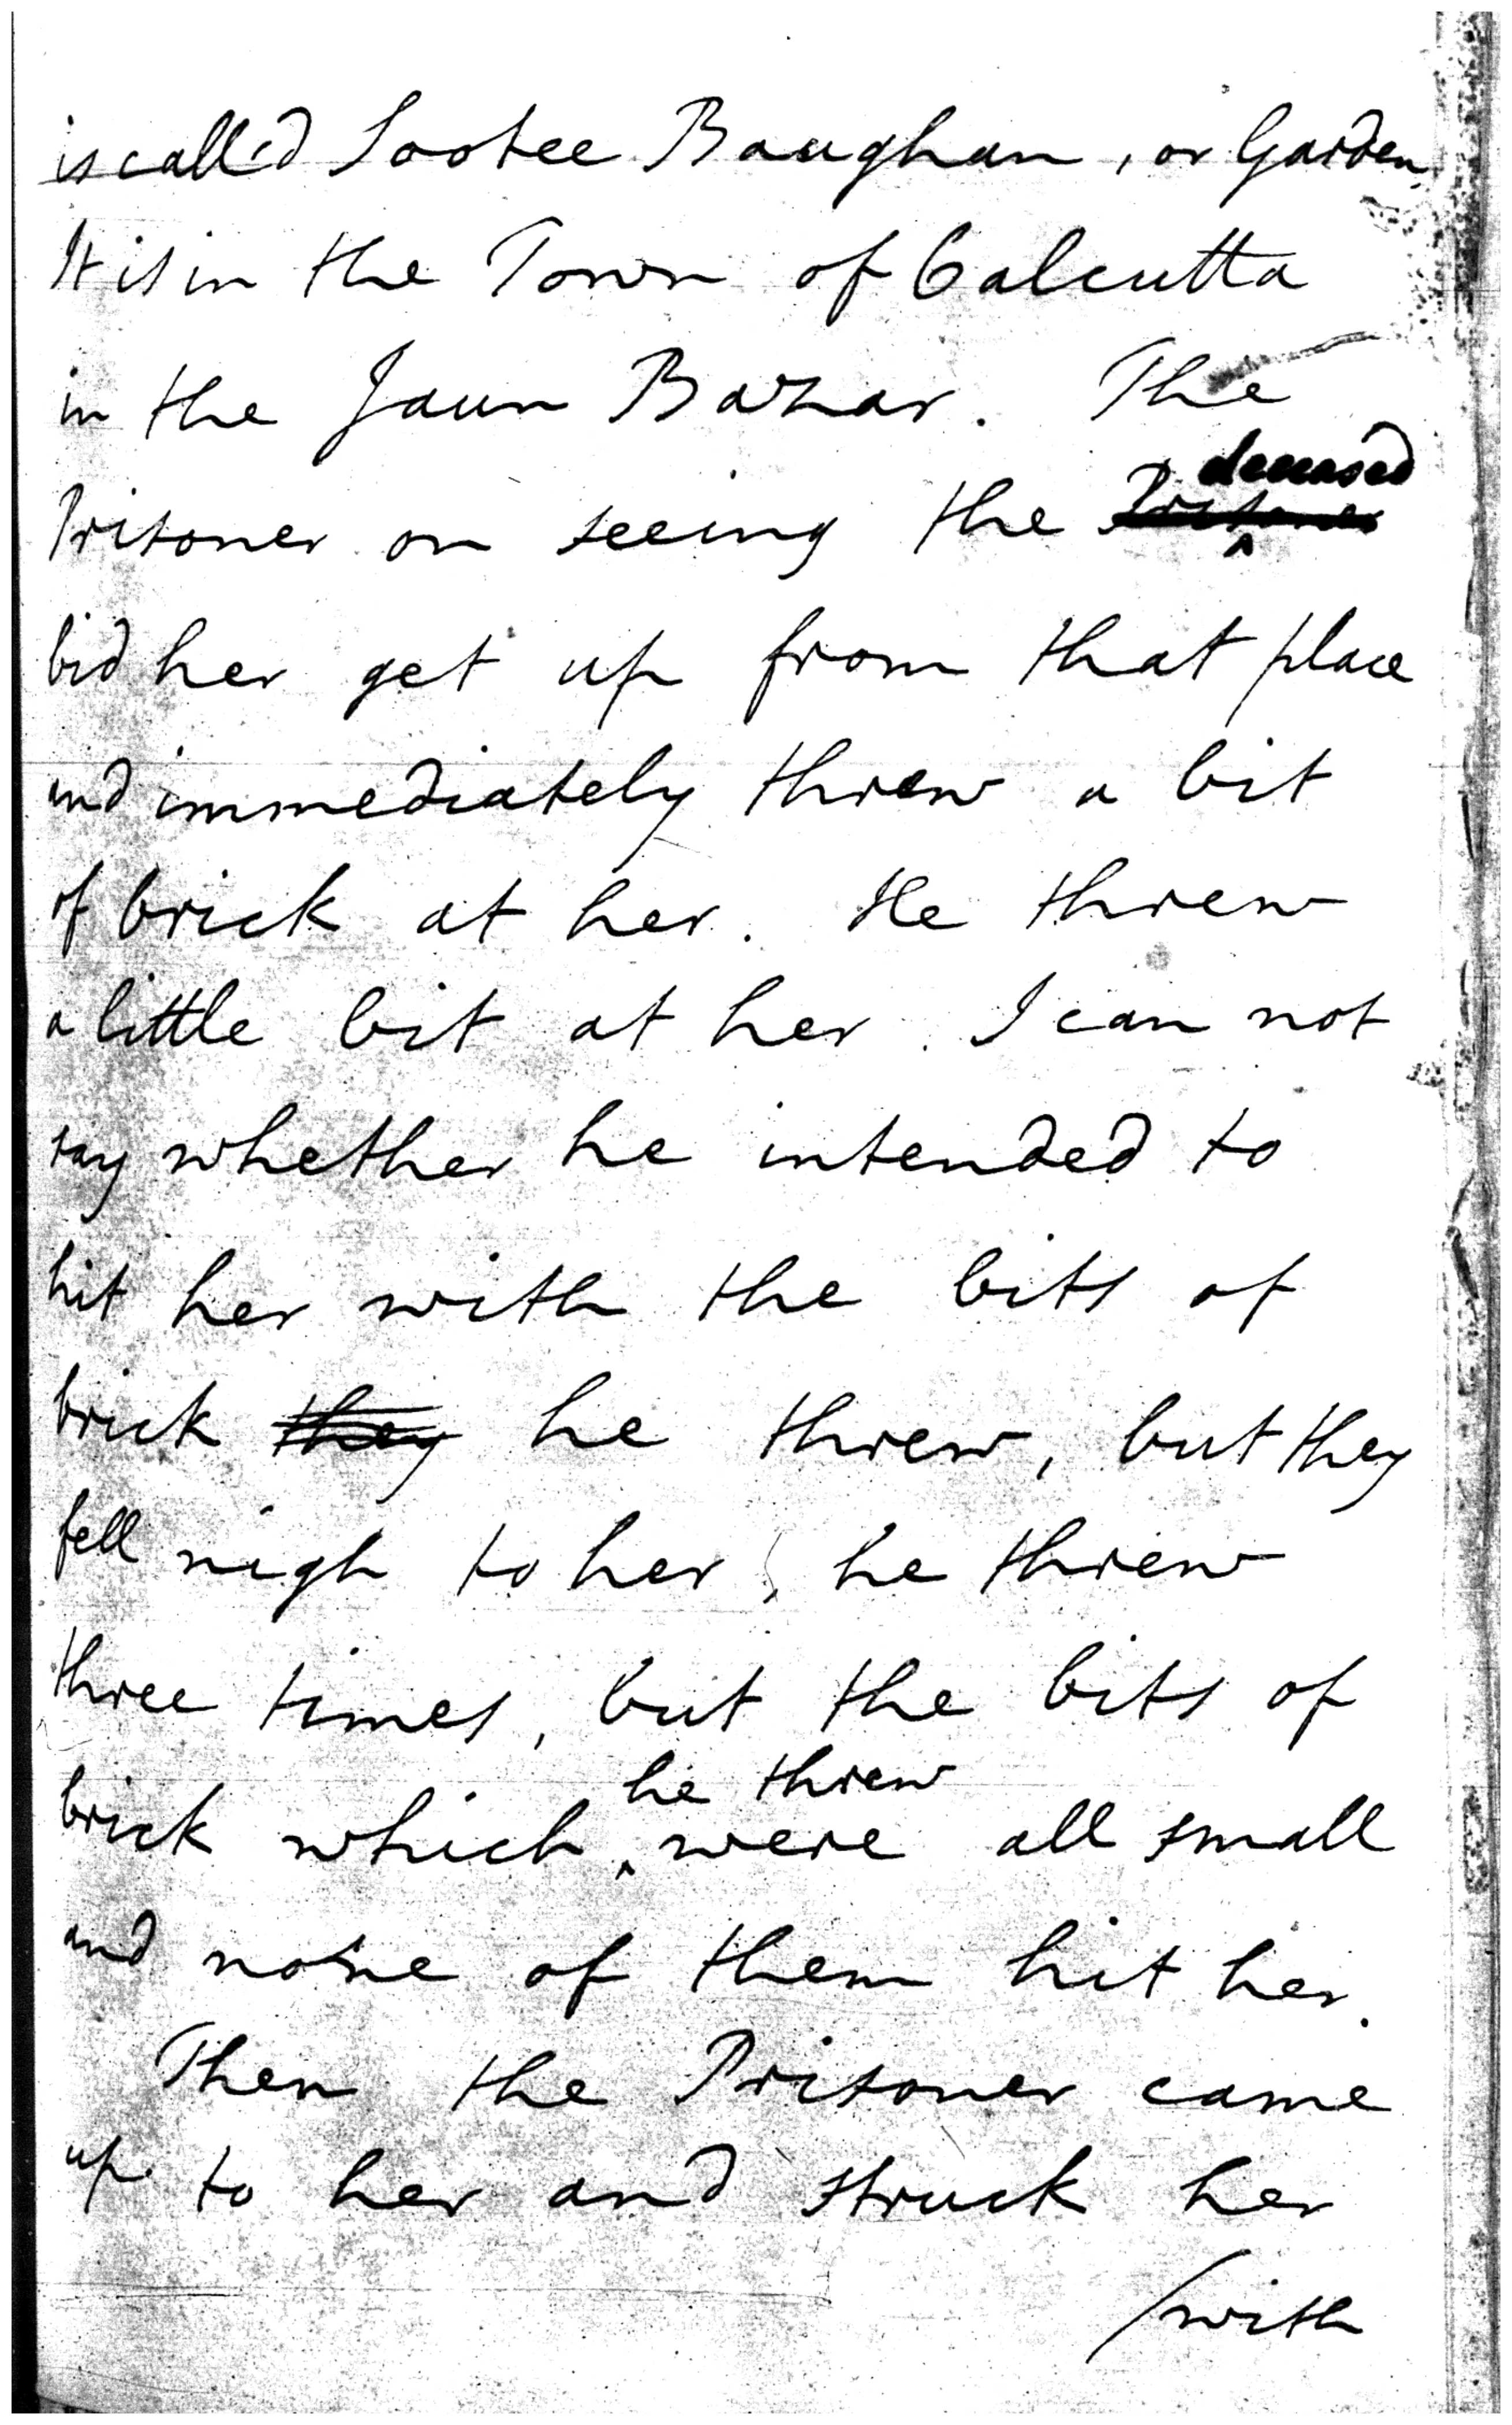 is call'd Sootee Baughan, or Garden
It is in the Town of Calcutta
in the Jaun Bazar. The
deceased
Prisoner on seeing the Prisoner
bid her get up from that place
and immediately threw a bit
of brick at her. He threw
a little bit at her. I can not
say whether he intended to
hit her with the bits of
brick they he threw, but they
fell nigh to her; he threw
three times, but the bits of
he threw
brick which were all small
and none of them hit her.
Then the Prisoner came
up to her and struck her
/with